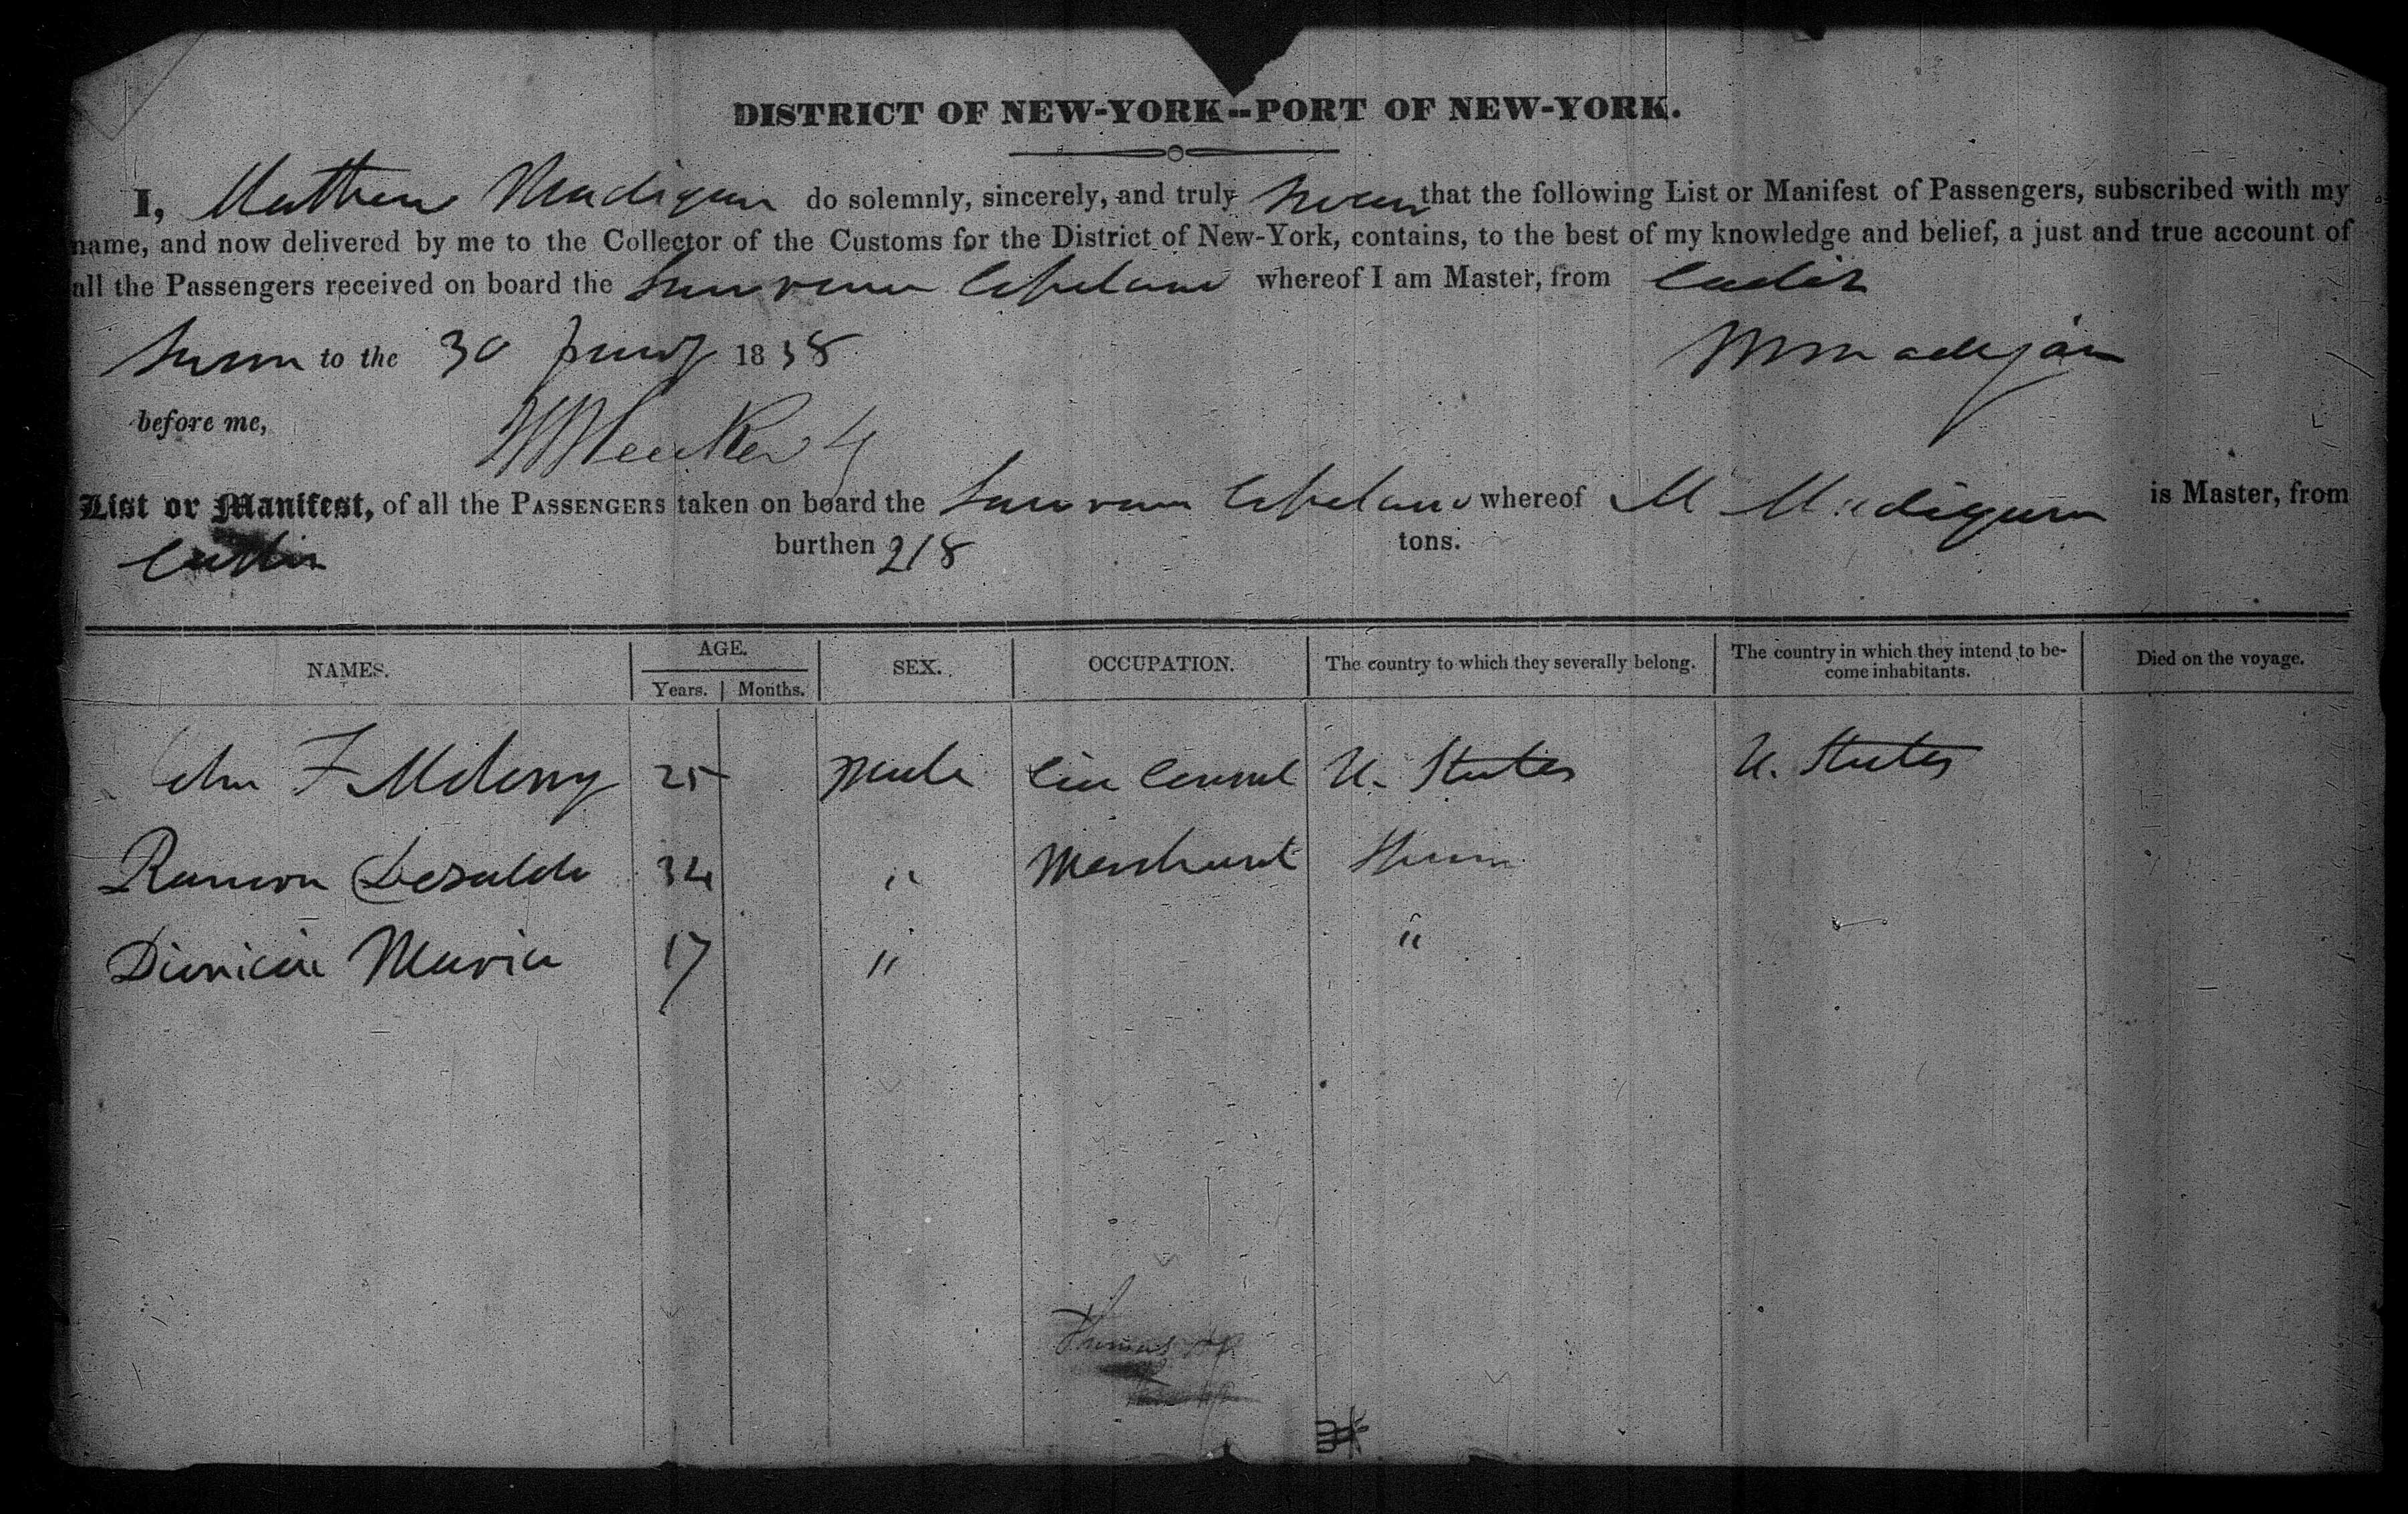 DISTRICT OF NEW-YORK--PORT OF NEW-YORK.
I, Mathew Madigan do solemnly, sincerely, and truly swear that the following List or Manifest of Passengers, subscribed with my
name, and now delivered by me to the Collector of the Customs for the District of New-York, contains, to the best of my knowledge and belief, a just and true account of
all the Passengers received on board the whereof I am Master, from Cadiz
Sworn to the 30 1838 M Madigan
before me,
List or Manifest, of all the PASSENGERS taken on board the whereof M Madigan is Master, from
Cadiz burthen 218 tons.
NAMES. AGE. SEX. OCCUPATION. The country to which they severally belong. The country in which they intend to be-
come inhabitants. Died on the voyage.
Years. Months.
John F 25 Male Consul U. States U. States
Ramon 34 " Merchant
Maria 17 " "